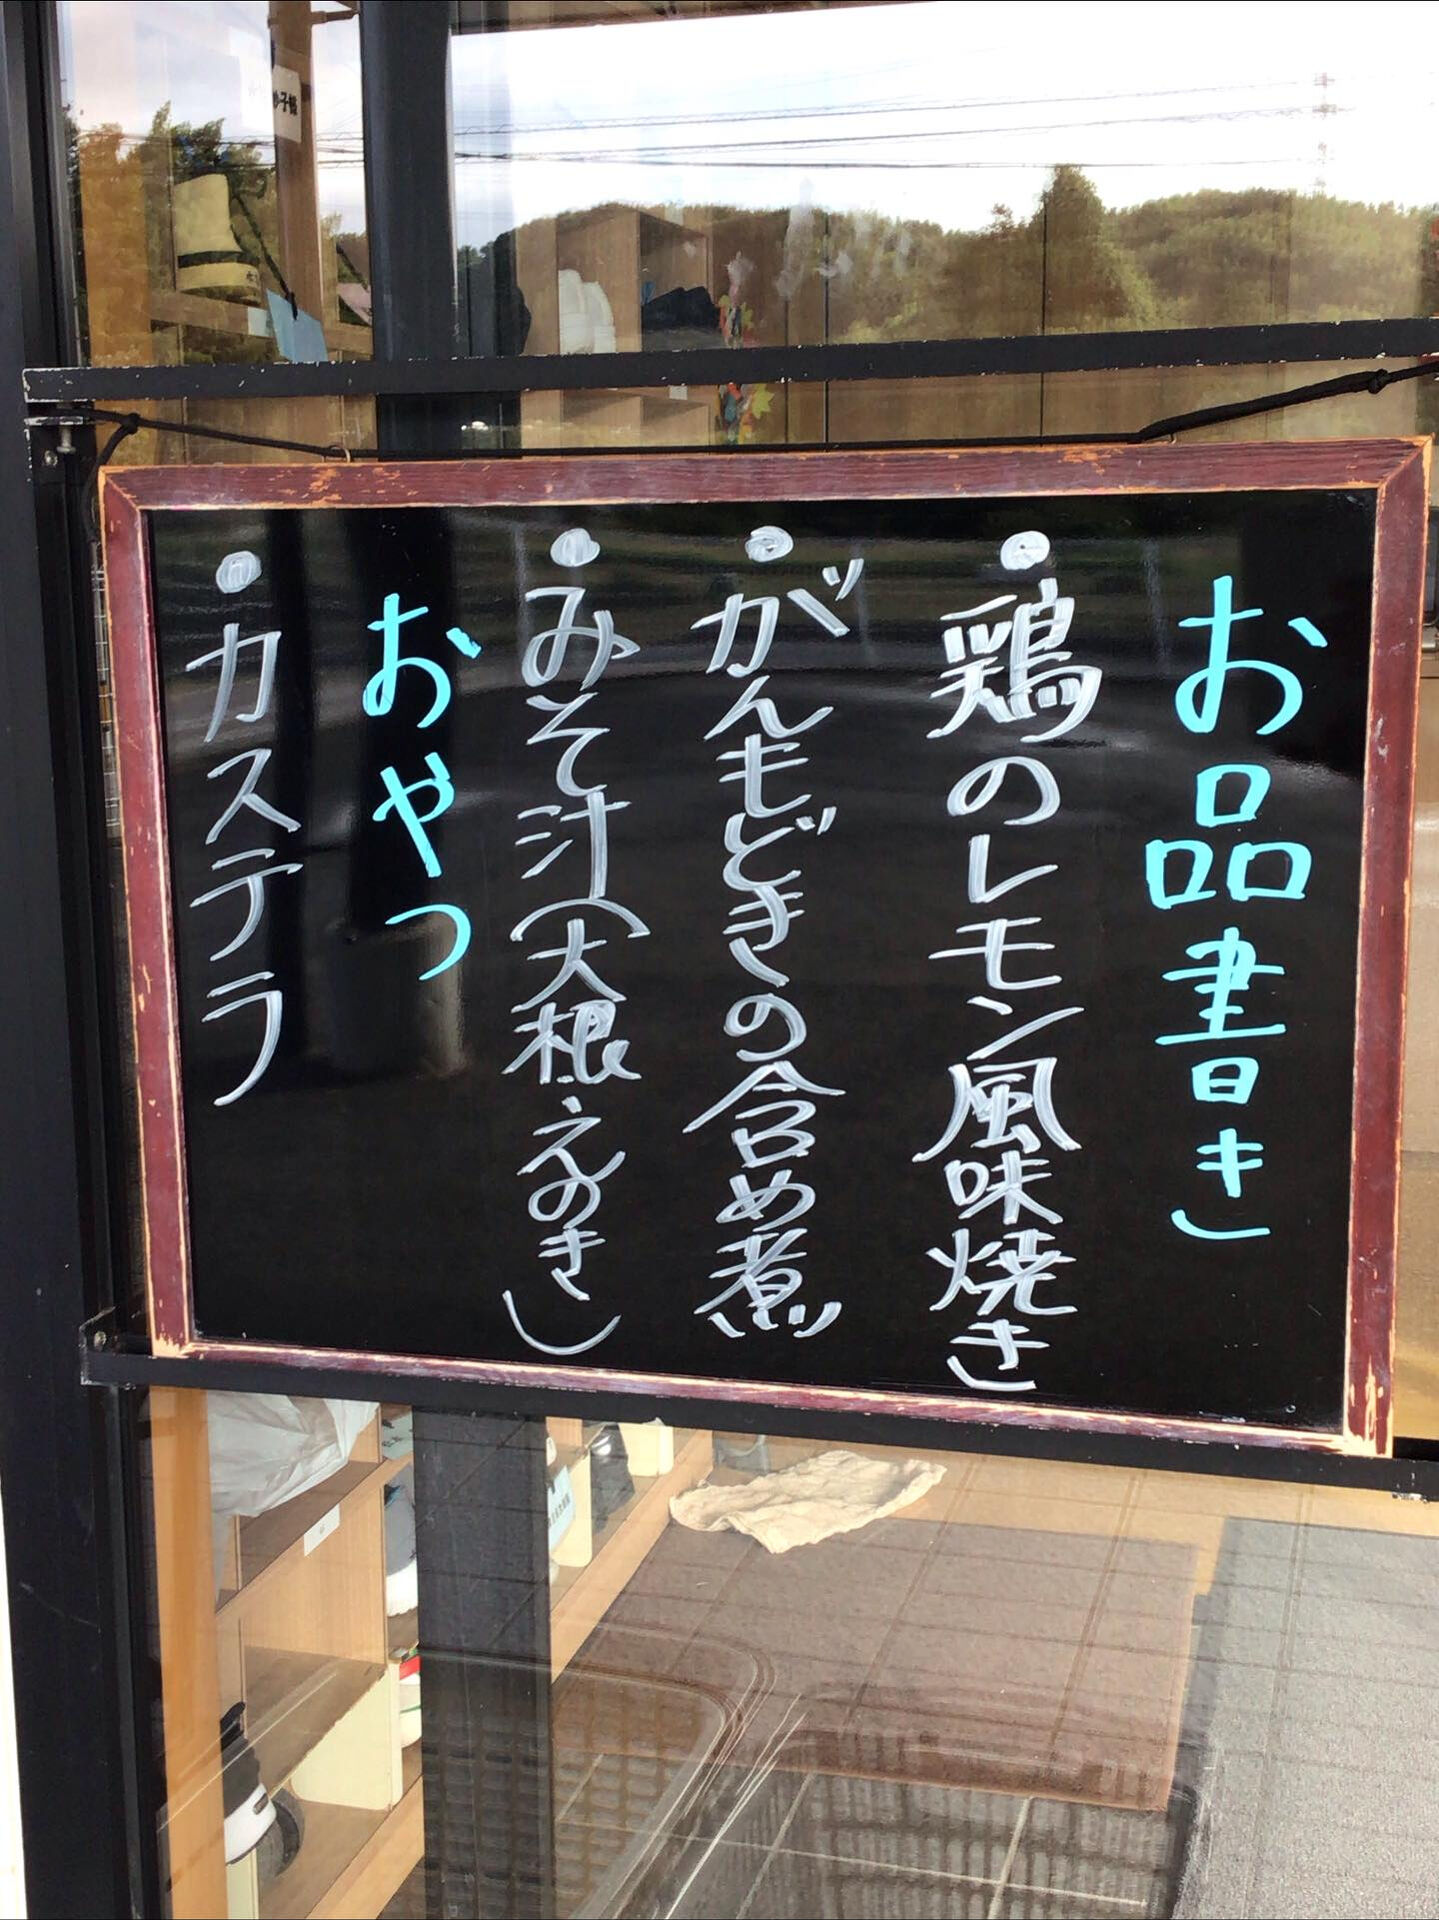 お品書き
・鶏のレモン風味焼き
・がんもどきの含め煮
・みそ汁(大根・えのき)
おやつ
・カステラ